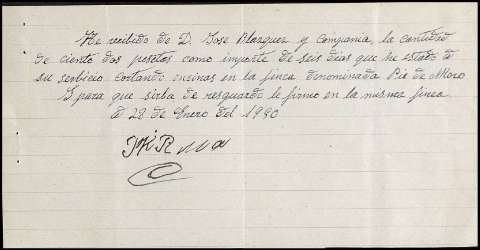 He recibido de D. Jose Blazquez y Compania, la cantidad
de ciento dos pesetas como importe de seis dias que he estado á
su serbicio cortando encinas en la finca denominada Pie de Moro
Y para que sirba de resguardo le firmo en la misma finca
á 28 de Enero del 1930